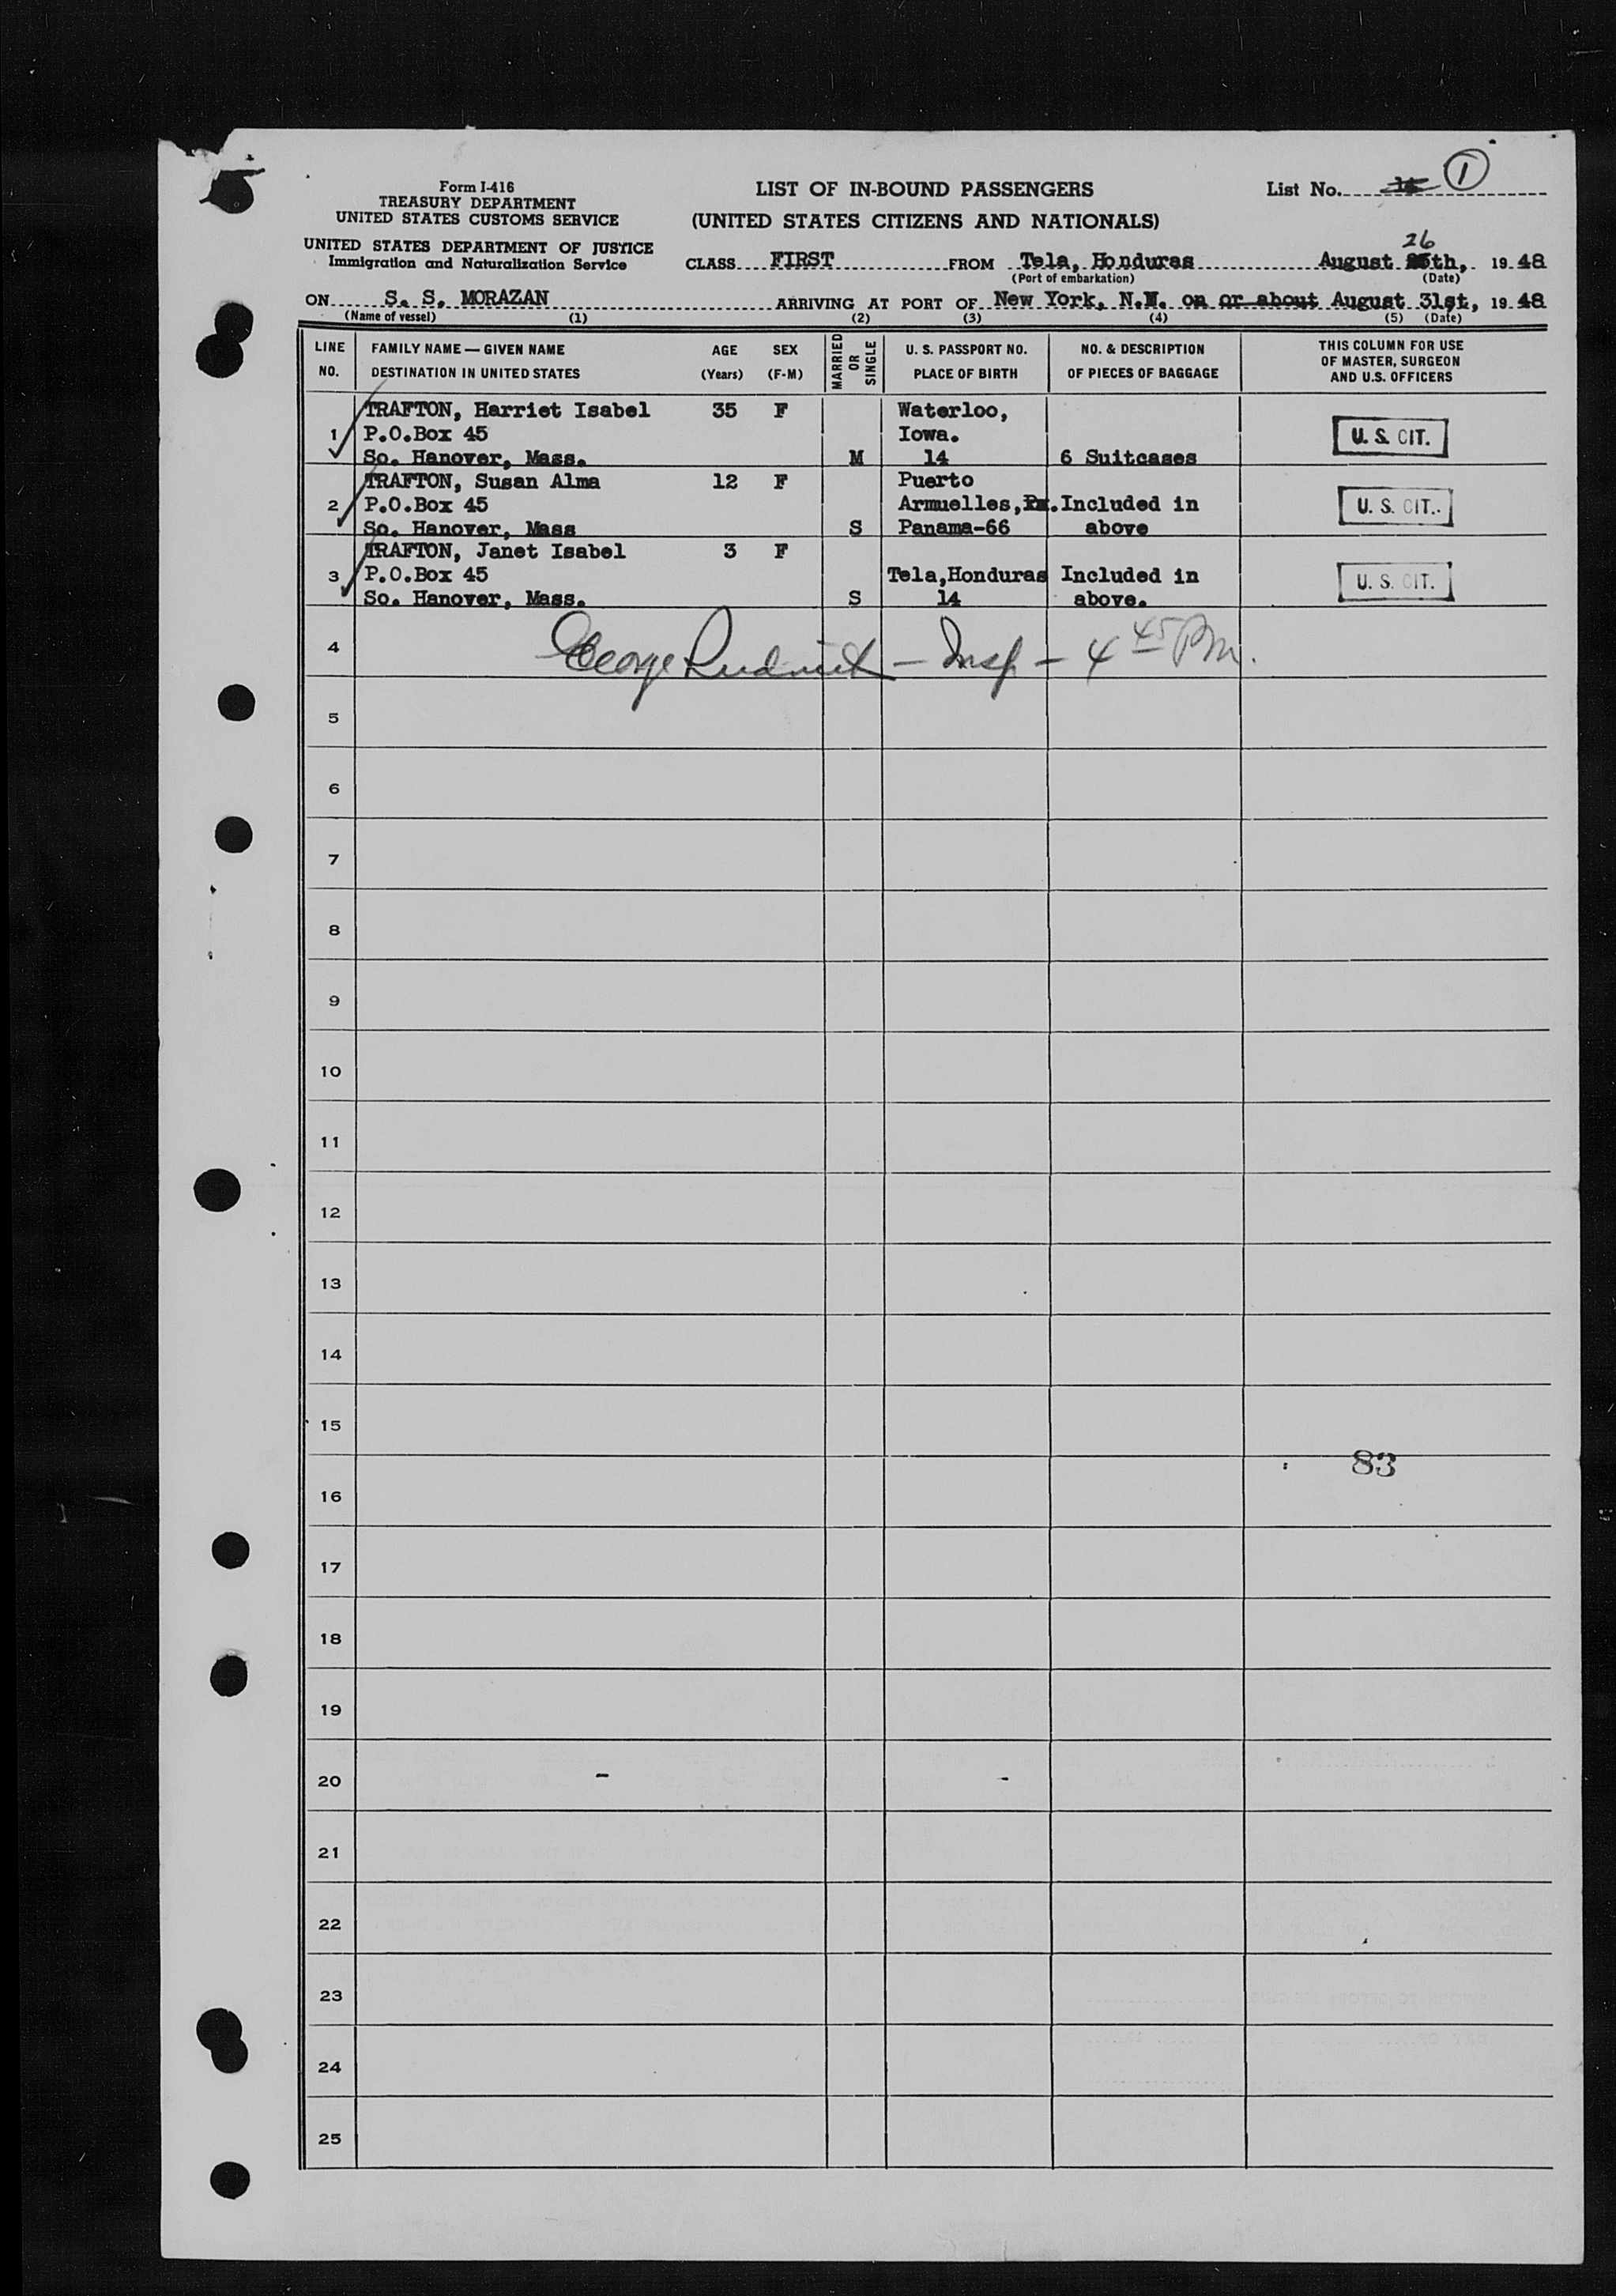 Form I-416
TREASURY DEPARTMENT
UNITED STATES CUSTOMS SERVICE
UNITED STATES DEPARTMENT OF JUSTICE
Immigration and Naturalization Service
LIST OF IN-BOUND PASSENGERS
(UNITED STATES CITIZENS AND NATIONALS)
List No. 1
26
CLASS FIRST FROM Tela, Honduras August th, 19 48
(Port of embarkation) (Date)
ON S. S. MORAZAN ARRIVING AT PORT OF New York, N.Y. on or about August 31st, 19 48
(Name of vessel) (1) (2) (3) (4) (5) (Date)
LINE NO.
FAMILY NAME — GIVEN NAME
DESTINATION IN UNITED STATES
AGE
(Years)
SEX
(F-M)
MARRIED OR SINGLE
U. S. PASSPORT NO.
PLACE OF BIRTH
NO. & DESCRIPTION
OF PIECES OF BAGGAGE
THIS COLUMN FOR USE
OF MASTER, SURGEON
AND U.S. OFFICERS
TRAFTON, Harriet Isabel 35 F Waterloo,
1 P.O.Box 45 Iowa. U. S. CIT.
So. Hanover, Mass. M 14 6 Suitcases
TRAFTON, Susan Alma 12 F Puerto
2 P.O.Box 45 Armuelles, Included in U. S. CIT.
So. Hanover, Mass S Panama-66 above
TRAFTON, Janet Isabel 3 F
3 P.O.Box 45 Tela,Honduras Included in U. S. CIT.
So. Hanover, Mass. S 14 above.
4 George - Insp - 4 45 PM.
5
6
7
8
9
10
11
12
13
14
15
83
16
17
18
19
20
21
22
23
24
25